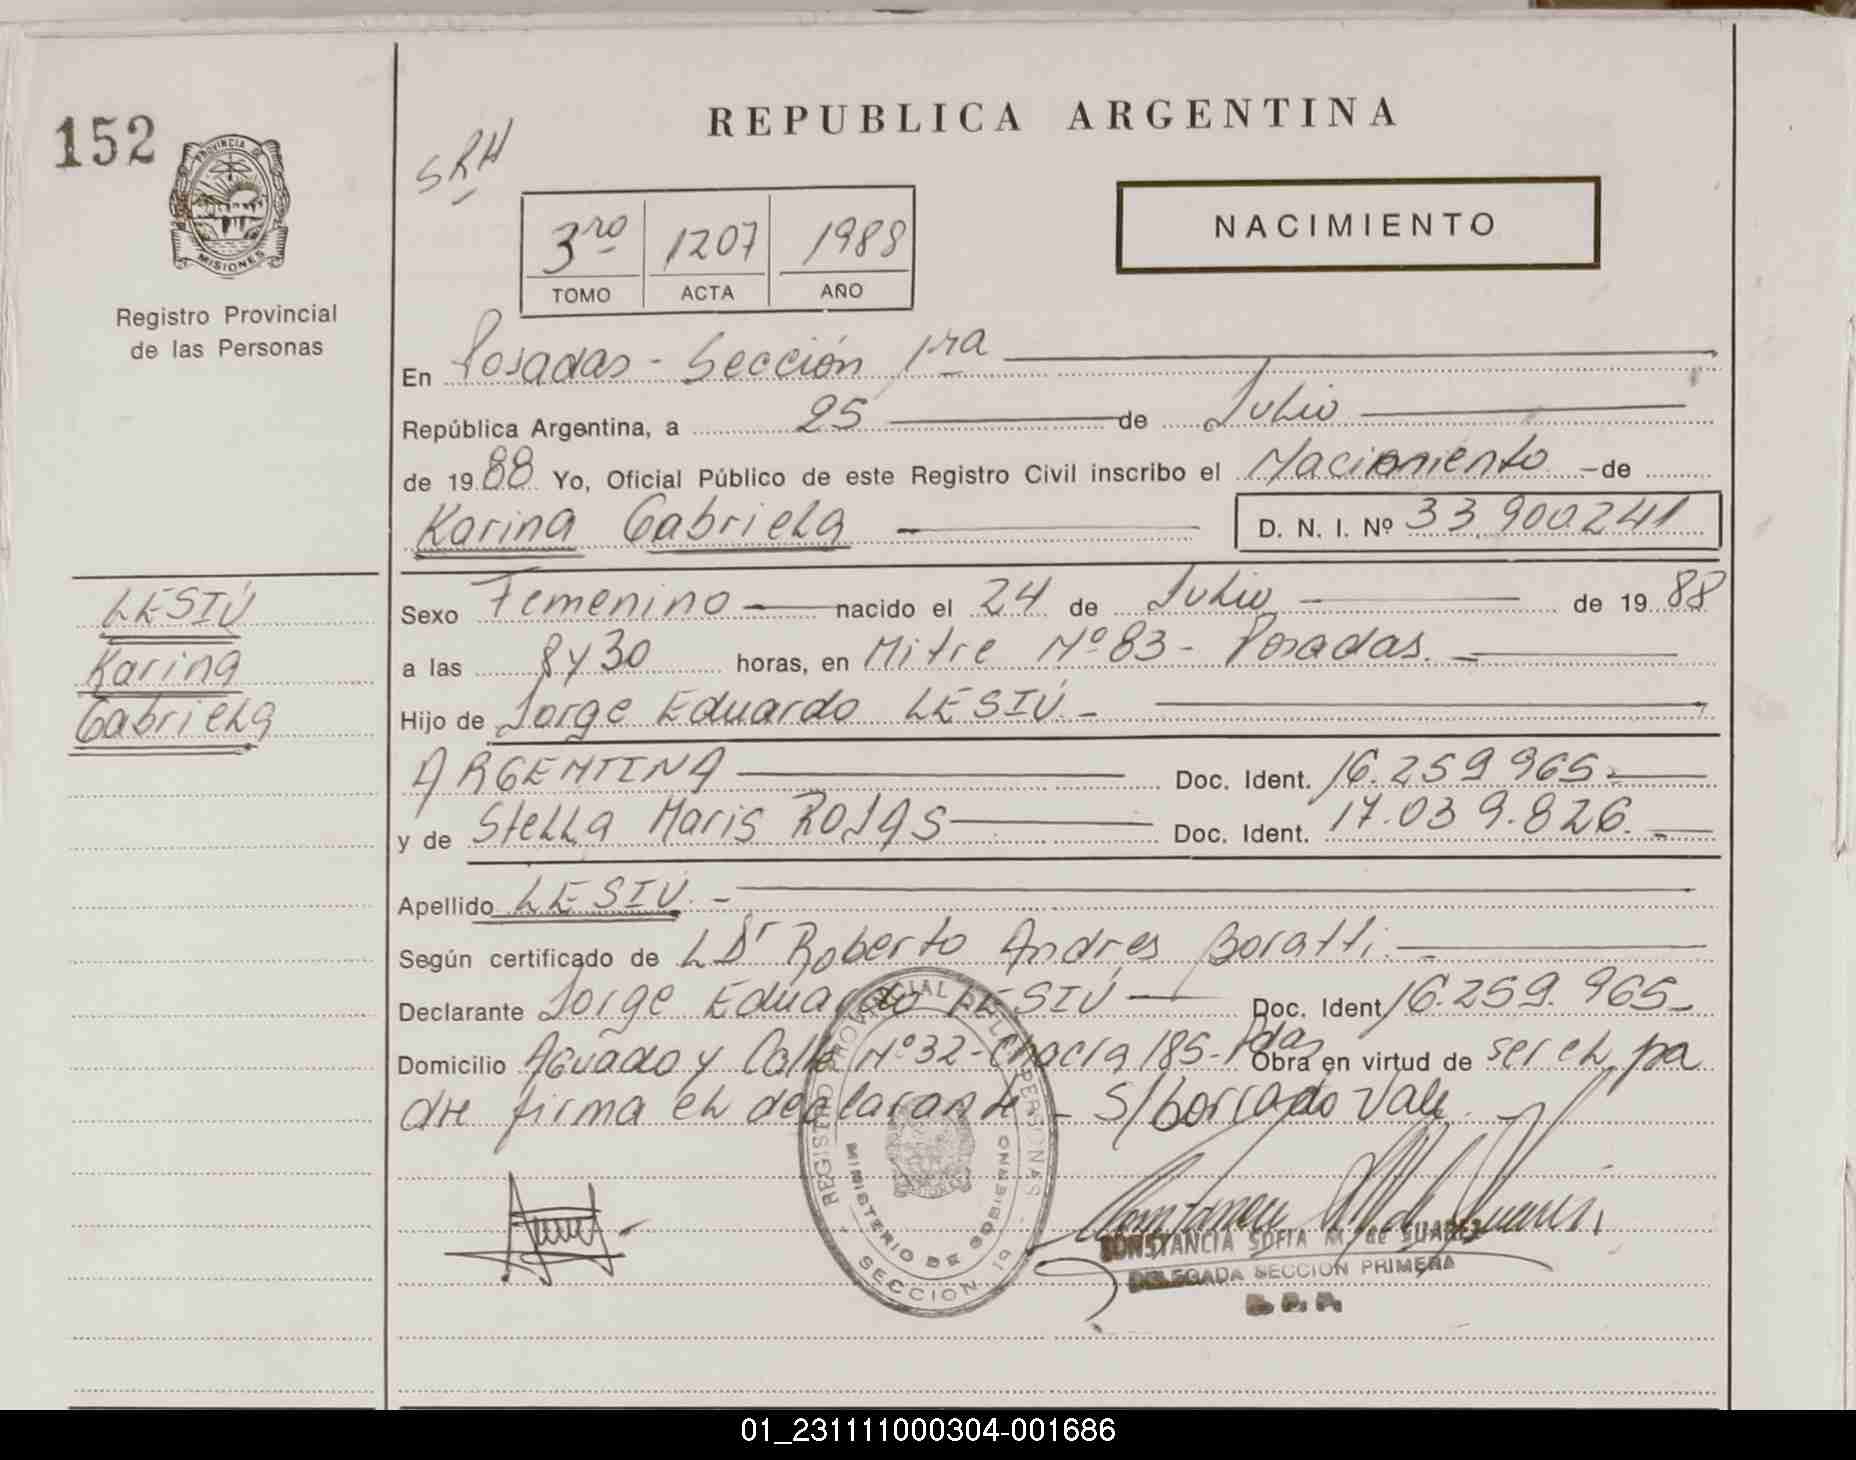 152
PROVINCIA DE
MISIONES
Registro Provincial
de las Personas
REPUBLICA ARGENTINA
SRH
3ro 1207 1988
TOMO ACTA AÑO
NACIMIENTO
En Posadas - Sección 1ra
República Argentina, a 25 de Julio
de 1988 Yo, Oficial Público de este Registro Civil inscribo el Nacimiento - de
Karina Gabriela D. N. I. Nº 33.900.241
LESIÚ
Karina
Gabriela
Sexo Femenino nacido el 24 de Julio de 1988
a las 8 y 30 horas, en Mitre Nº 83 - Posadas.
Hijo de Jorge Eduardo LESIÚ -
ARGENTINA Doc. Ident. 16.259.965 -
y de Stella Maris ROJAS Doc. Ident. 17.039.826. -
Apellido LESIÚ. -
Según certificado de L Dr Roberto Andres Boratti. -
Declarante Jorge Eduardo LESIÚ Doc. Ident 16.259.965 -
Domicilio Aguado y Calle Nº 32 - Chacra 185 - Pdas Obra en virtud de ser el pa
dre firma el declarante - S/borrado Vale. -
REGISTRO PROVINCIAL DE LAS PERSONAS
MINISTERIO DE GOBIERNO
SECCION 1ª
CONSTANCIA SOFIA M. de SUAREZ
DELEGADA SECCION PRIMERA
01_231111000304-001686